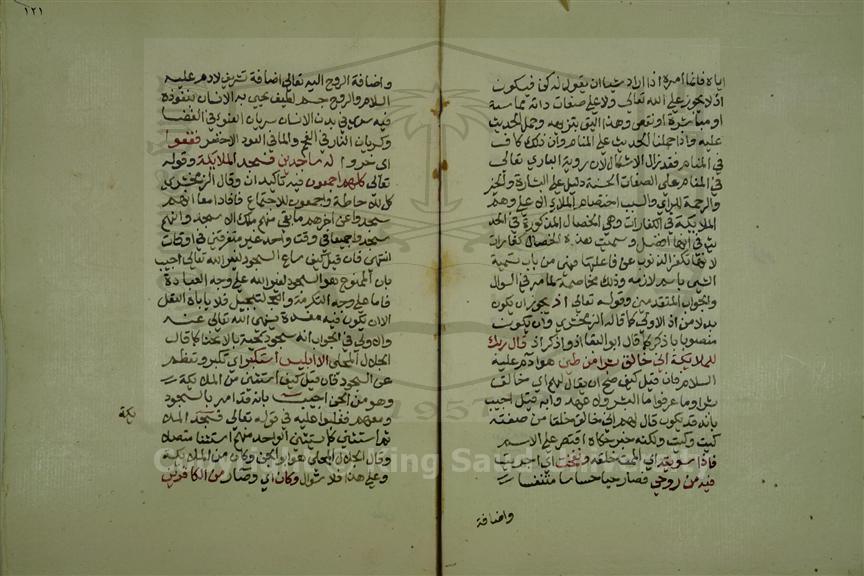 ١٢١
اياه فانما امره اذا اراد شيا ان يقول له كن فيكون
اذ لا يجوز على الله تعالى ولا على صفات ذاته مماسة
او مباشرة او نقص وهذا اليق بتنزيهه وحمل الحديث
عليه واذا حملنا الحديث على المنام وان ذلك كان
في المنام فقد زال الاشكال لان روية الباري تعالى
في المنام على الصفات الحسنة دليل على البشارة والخير
والرحمة للرائي والسبب اختصام الملا الاعلى وهم
الملايكة في الكفارات وهي الخصال المذكورة في الحد
يث في ايها افضل وسميت هذه الخصال كفارات
لانها تكفر الذنوب عن فاعلها فهي من باب تسمية
الشي باسم لازمه وذلك مخاصمة لما مر في السوال
والجواب المتقدمين وقوله تعالى اذ يجوز ان يكون
بدلا من اذ الاولى كما قاله الزمخشري وان يكون
منصوبا باذكر كما قال ابو البقا اذ واذكر اذ قال ربك
للملايكة اني خالق بشرا من طين هو ادم عليه
السلام فان قيل كيف صح ان يقال لهم اي خالق
بشرا وما عرفوا ما البشر ولا عهد وابه قبل اجيب
بانه قد يكون قال لهم اني خالق خلقا من صفته
كيت وكيت ولكنه حين حكاه اقتصر على الاسم
فاذا سويته اي اتممت خلقه ونفخت اي اجريت
فيه من روحي فصار حيا حساسا متنفسا
واضافة
واضافة الروح اليه تعالى اضافة تشريف لادم عليه
السلام والروح جسم لطيف يحيى به الانسان بنفوذه
فيه سرى في بدن الانسان سريان الضوء في الفضا
وكريان النار في الفحم والماء في العود الاخضر فقعوا
اي خروا له ساجدين فسجد الملايكة وقوله
تعالى كلهم اجمعون فيه تاكيدان وقال الزمخشري
كل للاحاطة واجمعون للاجتماع فافادا معا انهم
سجدوا عن اخرهم ما بقي منهم ملك الا سجد وانهم
سجدوا جميعا في وقت واحد غير متفرقين في اوقات
انتهى فان قيل كيف ساغ السجود لغير الله تعالى اجيب
بان الممنوع هو السجود لغير الله على وجه العبادة
فاما على وجه التكرمة والتبجيل فلا ياباه العقل
الا ان يكون فيه مفسدة فينهى الله تعالى عنه
والاولى في الجواب انه سجود تحية بالانحنا كما قال
الجلال المحلي الا ابليس استكبر اي تكبر وتعظم
عن السجود فان قيل كيف استثنى من الملايكة
وهو من الجن اجيب بانه قد امر بالسجود
معهم فغلبوا عليه في قوله تعالى فسجد الملا
يكة
ثم استثنى كما يستثنى الواحد منهم استثنا متصلا
وقال الجلال المحلي هو ابو الجن وكان من الملايكة
وعلى هذا فلا سوال وكان اي وصار من الكافرين
1957
Copyright © King Saud University